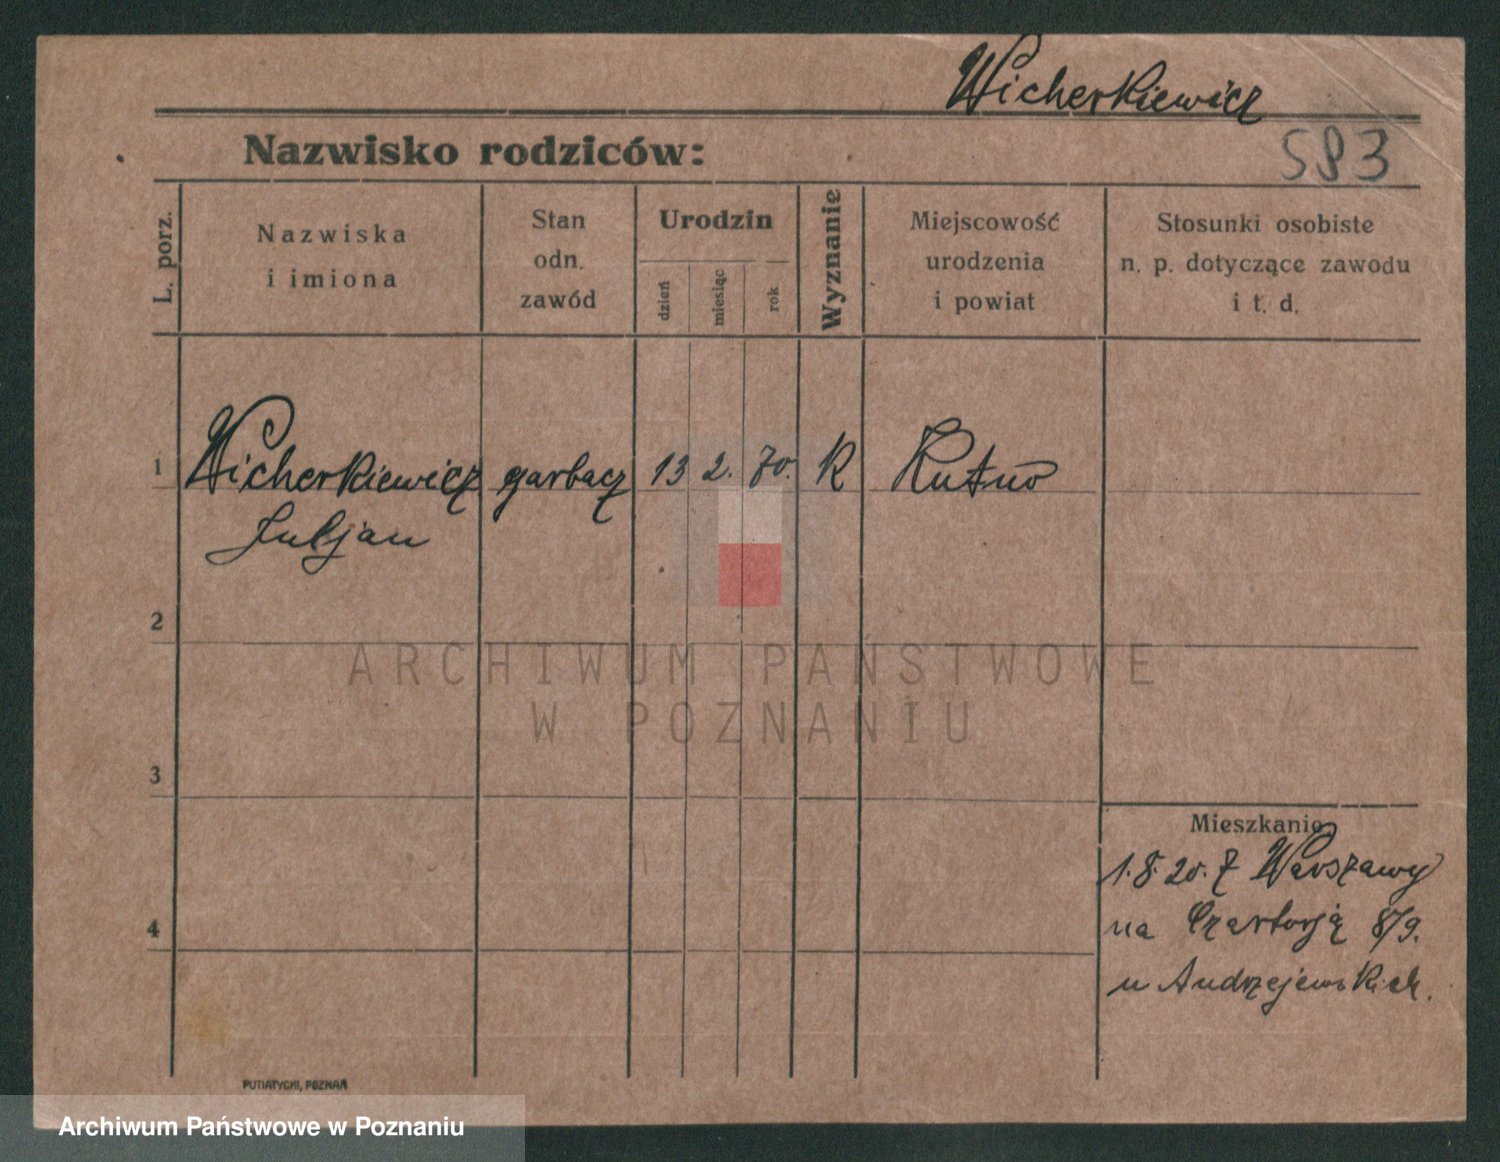 Wicherkiewicz
583
Nazwisko rodziców:
L. porz.
Nazwiska
i imiona
Stan
odn.
zawód
Urodzin
dzień
miesiąc
rok
Wyznanie
Miejscowość
urodzenia
i powiat
Stosunki osobiste
n. p. dotyczące zawodu
i t. d.
1
Wicherkiewicz garbacz 13 2. 70. K Kutno
Juljan
2
ARCHIWUM PAŃSTWOWE
W POZNANIU
3
Mieszkanie
1.8.20. z Warszawy
na Czartorją 8/9.
u Andrzejewskich.
4
PUTIATYCKI, POZNAŃ
Archiwum Państwowe w Poznaniu